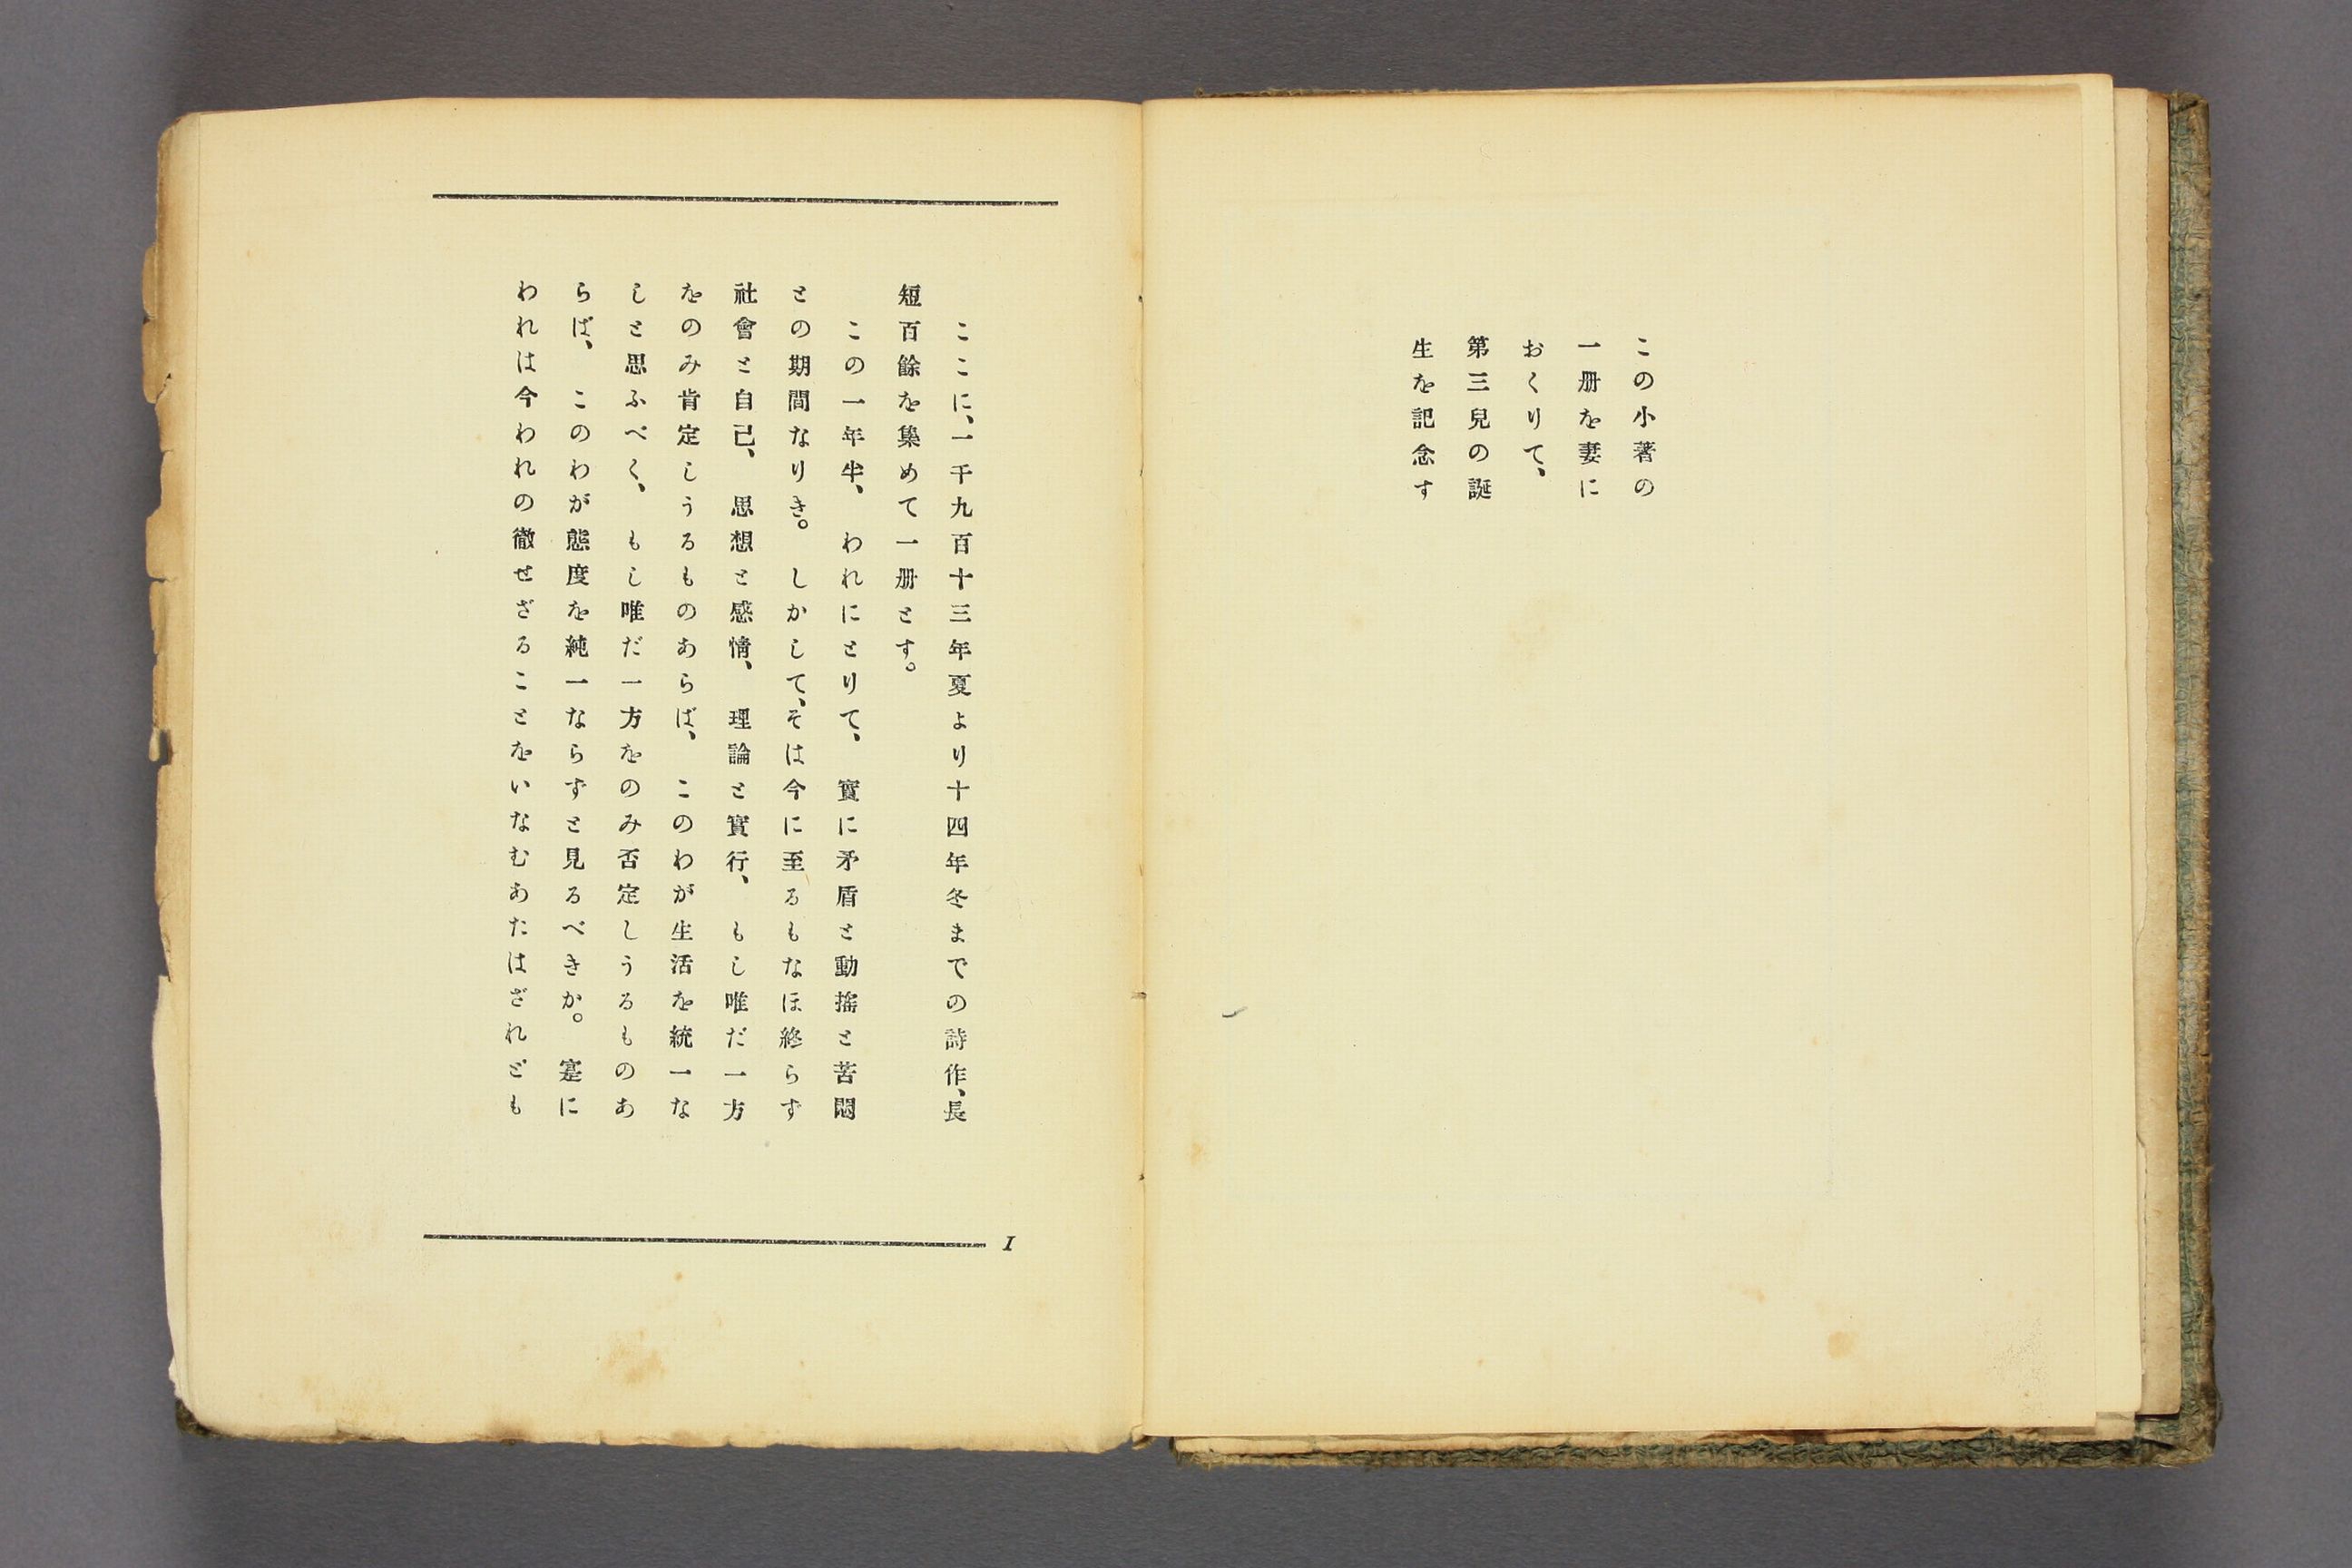 この小著の
一册を妻に
おくりて、
第三兒の誕
生を記念す
ここに、一千九百十三年夏より十四年冬までの詩作、長
短百餘を集めて一册とす。
この一年半、われにとりて、實に矛盾と動搖と苦悶
との期間なりき。しかして、そは今に至るもなほ終らず
社會と自己、思想と感情、理論と實行、もし唯だ一方
をのみ肯定しうるものあらば、このわが生活を統一な
しと思ふべく、もし唯だ一方をのみ否定しうるものあ
らば、このわが態度を純一ならずと見るべきか。寔に
われは今われの徹せざることをいなむあたはざれども
I